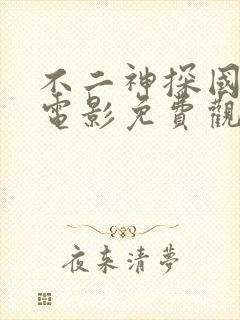 不二神探國
電影免費觀
夜來清夢